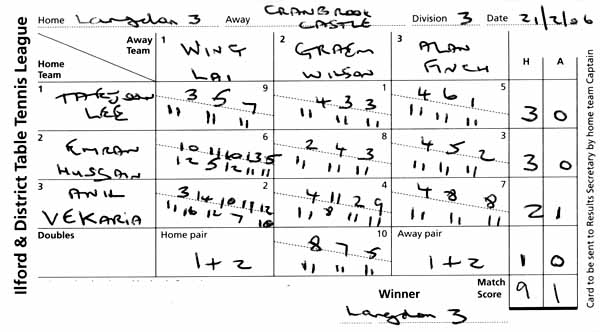 Ilford & District Table Tennis League
Home Langdon 3 Away CRANBROOK CASTLE Division 3 Date 21/2/06
Away Team 1 WING LAI 2 GRAEM WILSON 3 ALAN FINCH H A
Home Team
1 LEE 9 1 5
3 5 7 4 3 3 4 6 1 3 0
11 11 11 11 11 11 11 11 11
2 EMRAN HUSSAIN 6 8 3
10 11 10 13 5 2 4 3 4 5 2 3 0
12 5 12 11 11 11 11 11 11 11 11
3 ANIL VEKARIA 2 4 7
3 14 10 11 12 4 11 2 9 4 8 8 2 1
11 16 12 7 10 11 8 11 11 11 11 11
Doubles Home pair 10 Away pair
8 7 5
1+2 11 11 11 1+2 1 0
Winner Match Score 9 1
Langdon 3
Card to be sent to Results Secretary by home team Captain